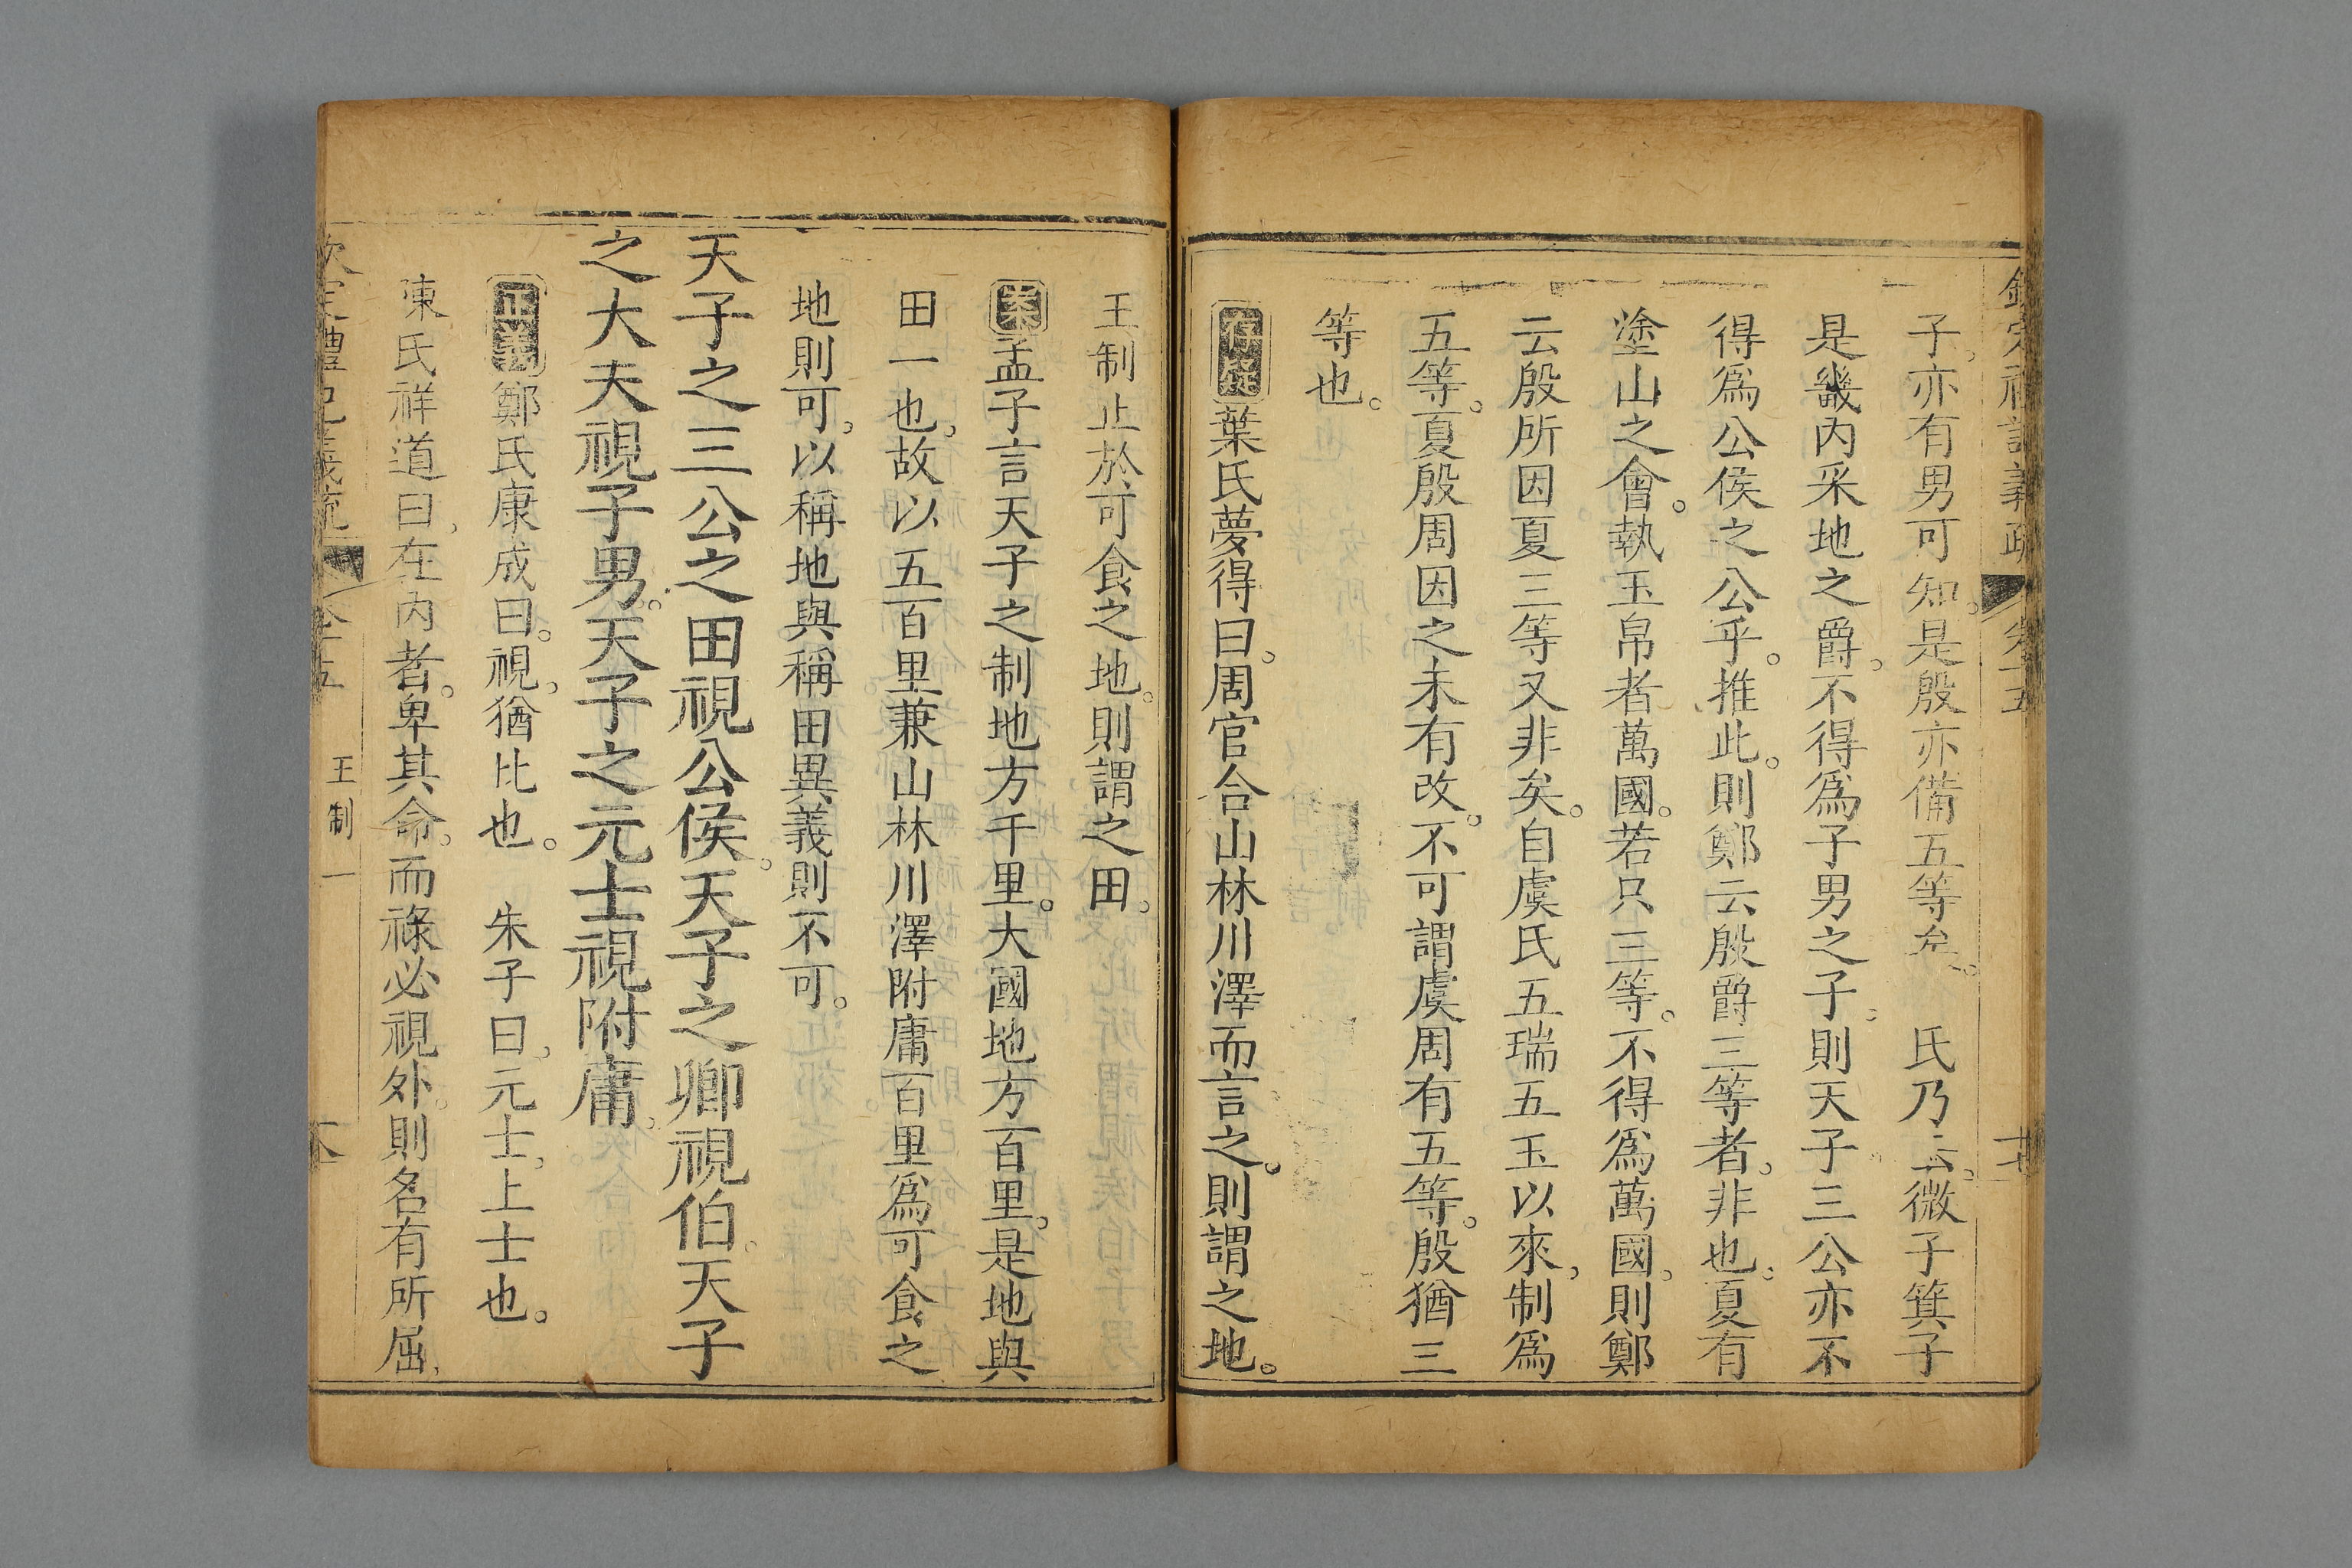 子亦有男可知。是殷亦備五等矣。 氏乃云。微子箕子
是畿內采地之爵。不得爲子男之子。則天子三公亦不
得爲公侯之公乎。推此。則鄭云殷爵三等者。非也。夏有
塗山之會。執玉帛者萬國。若只三等。不得爲萬國。則鄭
云殷所因夏三等又非矣。自虞氏五瑞五玉以來。制爲
五等。夏殷周因之未有改。不可謂虞周有五等。殷猶三
等也。
存疑葉氏夢得曰。周官合山林川澤而言之。則謂之地。
王制止於可食之地。則謂之田。
案孟子言天子之制地方千里。大國地方百里。是地與
田一也。故以五百里兼山林川澤附庸百里爲可食之
地則可。以稱地與稱田異義則不可。
天子之三公之田視公侯。天子之卿視伯。天子
之大夫視子男。天子之元士視附庸。
正義鄭氏康成曰。視。猶比也。 朱子曰。元士。上士也。
陳氏祥道曰。在內者。卑其命。而祿必視外。則名有所屈。
欽定禮記義疏 卷十五 王制一